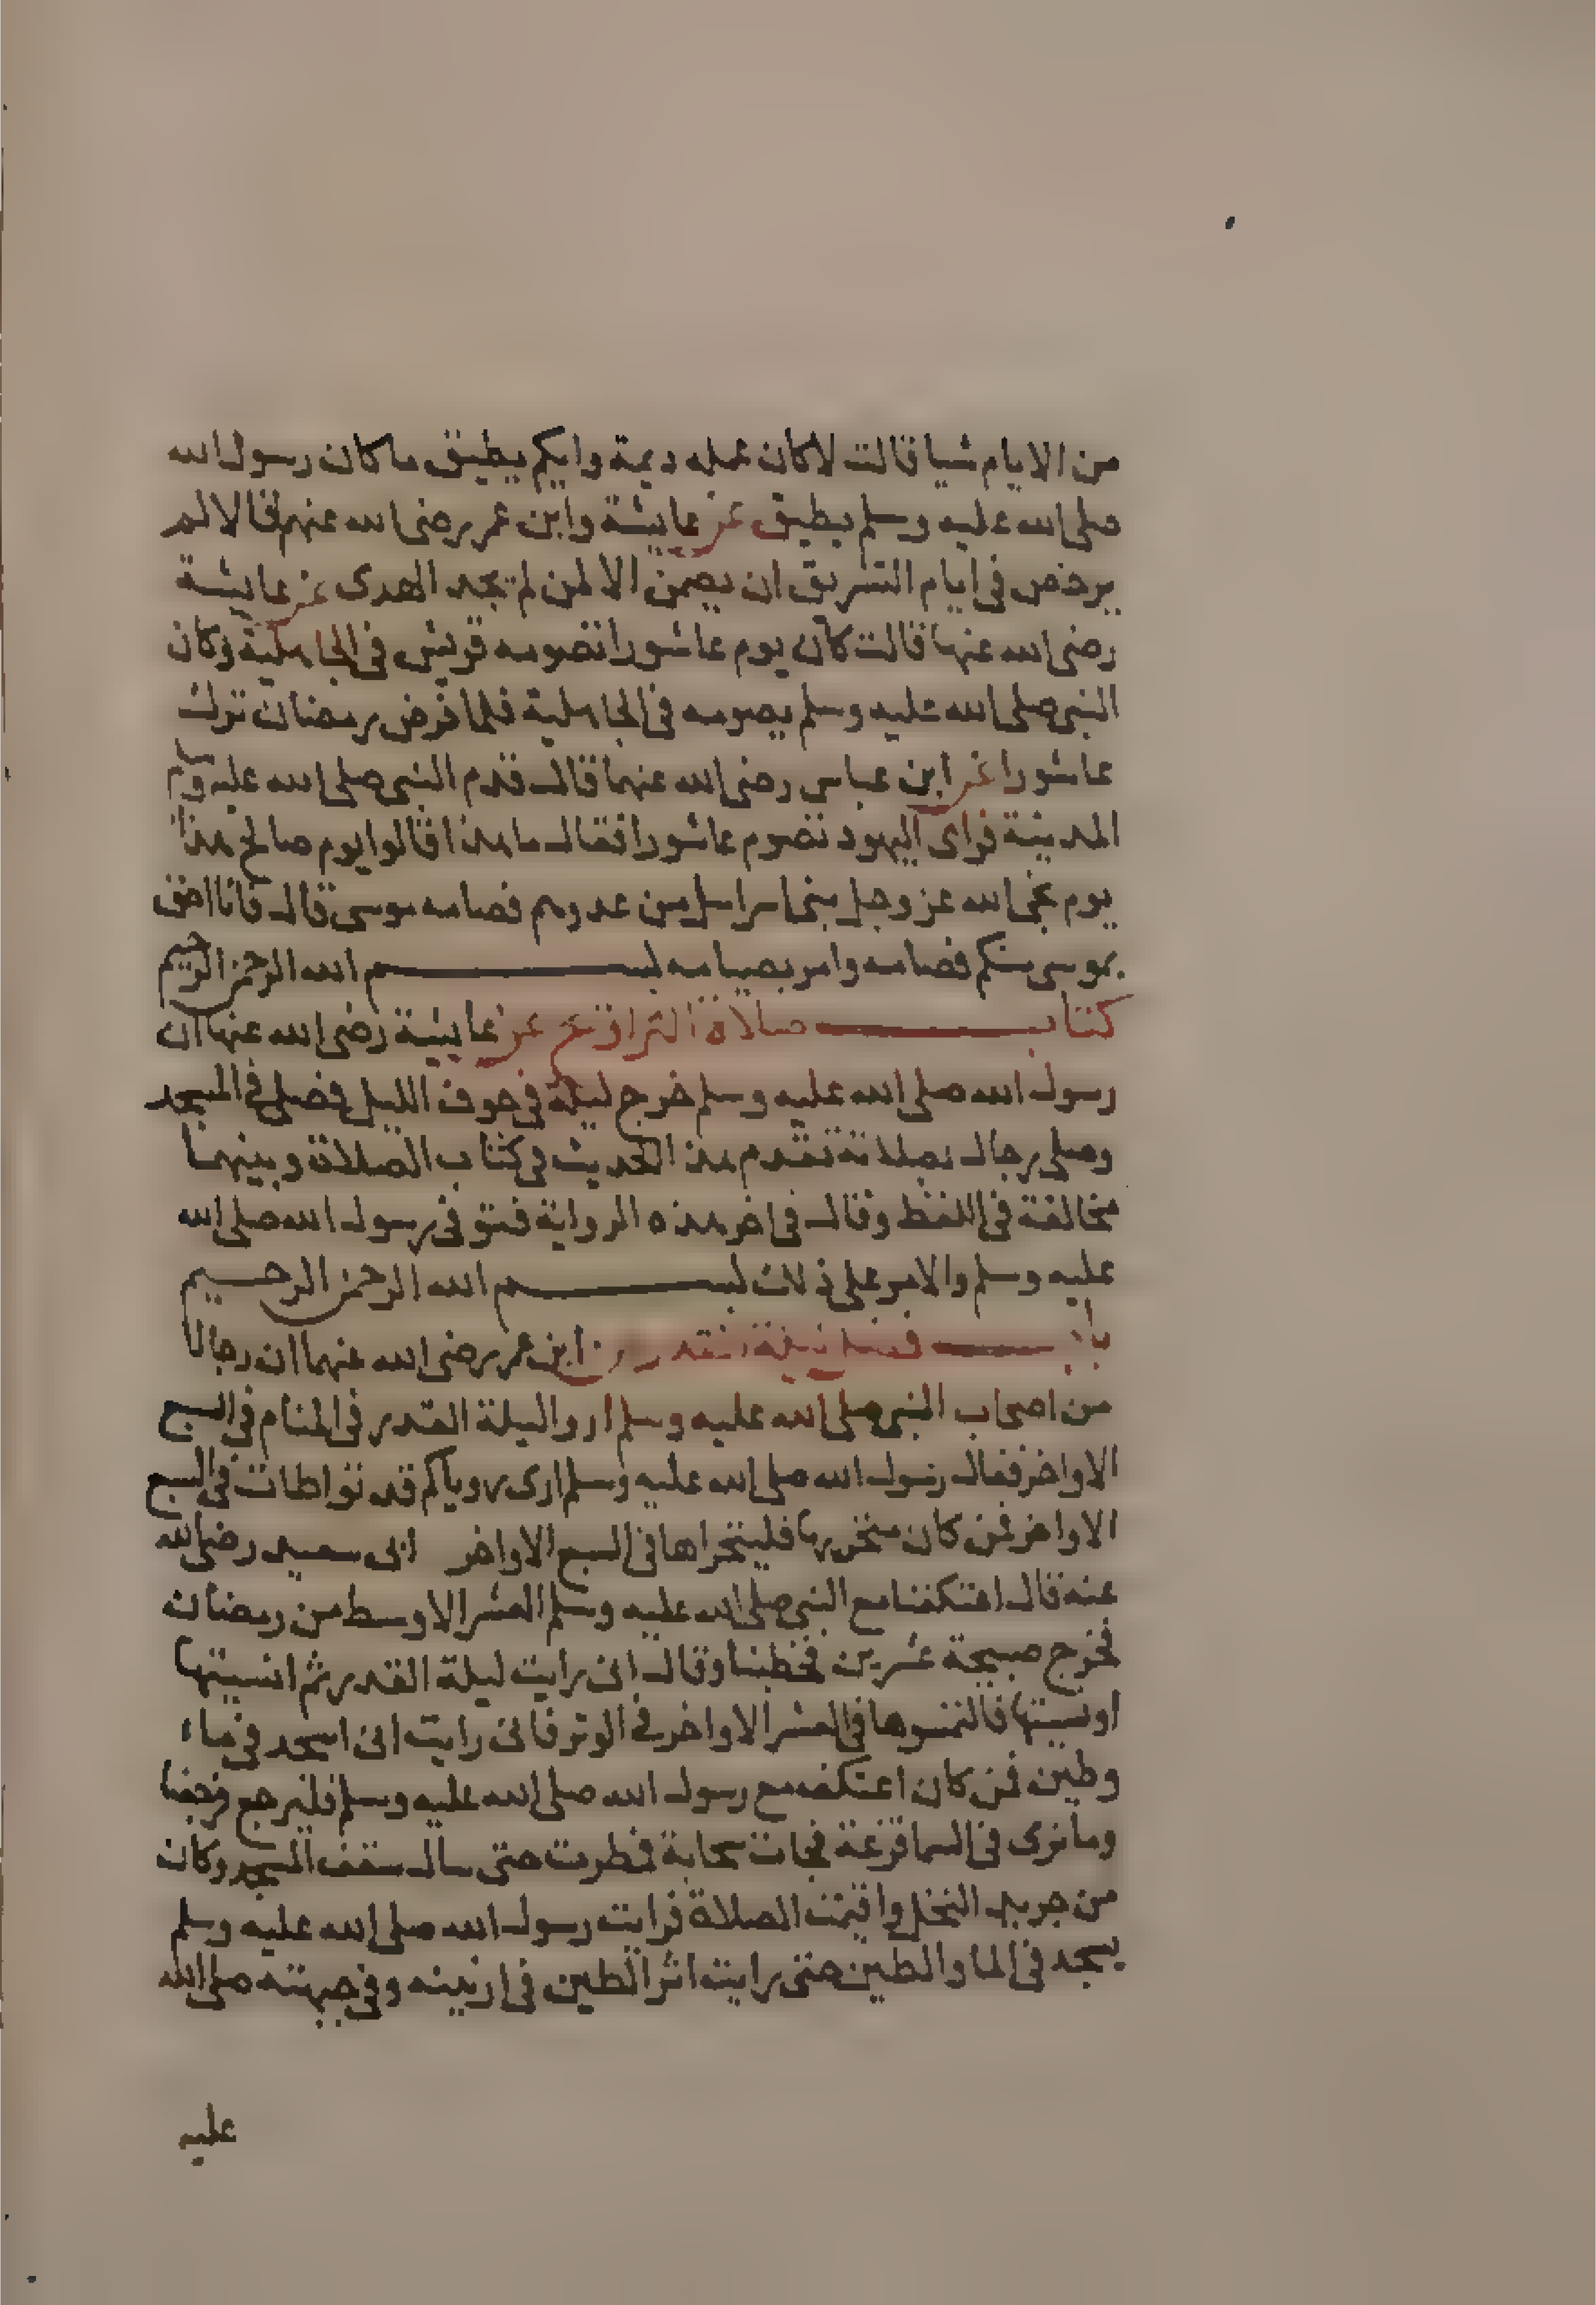 من الايام شيا قالت لا كان عمله ديمة وايكم يطيق ما كان رسول الله
صلى الله عليه وسلم يطيق عن عايشة وابن عمر رضى الله عنهم قالا لم
يرخص فى ايام التشريق ان يصمن الا لمن لم يجد الهدى عن عايشة
رضى الله عنها قالت كان يوم عاشورا تصومه قريش فى الجاهلية وكان
النبى صلى الله عليه وسلم يصومه فى الجاهلية فلما فرض رمضان ترك
عاشورا عن ابن عباس رضى الله عنهما قال قدم النبى صلى الله عليه وسلم
المدينة فراى اليهود تصوم عاشورا فقال ما هذا قالوا يوم صالح هذا
يوم نجى الله عز وجل بنى اسرايل من عدوهم فصامه موسى قال فانا احق
بموسى منكم فصامه وامر بصيامه بسم الله الرحمن الرحيم
كتاب صلاة التراويح عن عايشة رضى الله عنها ان
رسول الله صلى الله عليه وسلم خرج ليلة فى جوف الليل فصلى فى المسجد
وصلى رجال بصلاته تقدم هذا الحديث فى كتاب الصلاة وبينهما
مخالفة فى اللفظ وقال فى اخر هذه الرواية فتوفى رسول الله صلى الله
عليه وسلم والامر على ذلك بسم الله الرحمن الرحيم
باب فضل ليلة القدر عن ابن عمر رضى الله عنهما ان رجالا
من اصحاب النبى صلى الله عليه وسلم اروا ليلة القدر فى المنام فى السبع
الاواخر فقال رسول الله صلى الله عليه وسلم ارى روياكم قد تواطات فى السبع
الاواخر فمن كان متحريها فليتحراها فى السبع الاواخر ابى سعيد رضى الله
عنه قال اعتكفنا مع النبى صلى الله عليه وسلم العشر الاوسط من رمضان
فخرج صبيحة عشرين فخطبنا وقال انى رايت ليلة القدر ثم انسيتها
او نسيتها فالتمسوها فى العشر الاواخر فى الوتر فانى رايت انى اسجد فى ماء
وطين فمن كان اعتكف مع رسول الله صلى الله عليه وسلم فليرجع فرجعنا
وما نرى فى السما قزعة فجات سحابة فمطرت حتى سال سقف المسجد وكان
من جريد النخل واقيمت الصلاة فرايت رسول الله صلى الله عليه وسلم
يسجد فى الما والطين حتى رايت اثر الطين فى ارنبته وفى جبهته صلى الله
عليه